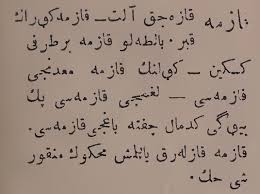 قازمه قازه‌جق آلت ـ قازمه کورك
قبر. بالطه‌لو قازمه بر طرفی
کسکین ـ کوانك قازمه معدنجی
قازمه‌سی ـ لغمجی قازمه‌سی پك
بیوگی کدمال جفته باغجی قازمه‌سی.
قازمه قازلەرق یاپلمش محکوك منقور
شی حك.